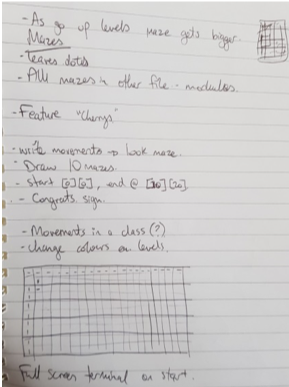 - As go up levels maze gets bigger.
Mazes
- Leaves dots
- All mazes in other file - modules.
- Feature "cherrys"
- write movements → look maze.
- Draw 10 mazes.
- Start [0][0], end @ [20].
- Congrats sign.
- Movements in a class (?)
- Change colours on levels.
Full screen terminal on start.